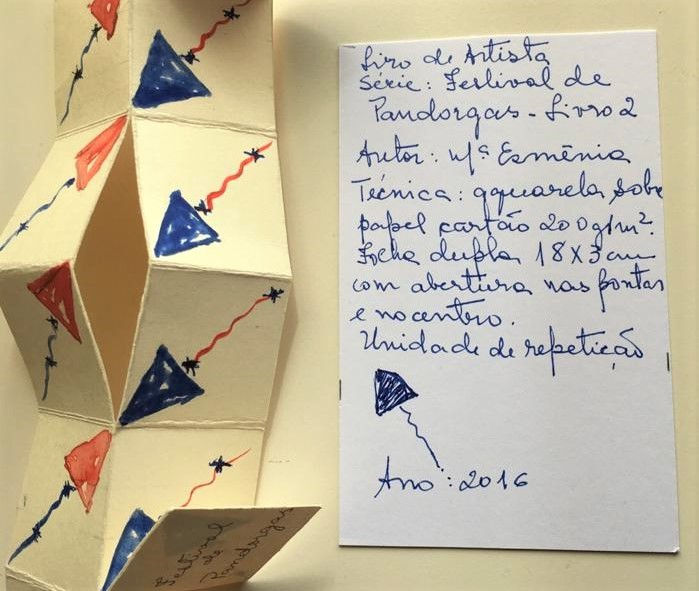 Livro de Artista
Série: Festival de
Pandorgas - Livro 2
Autor: Mª Esmênia
Técnica: aquarela sobre
papel cartão 200g/m².
Folha dupla 18x3 cm
com abertura nas pontas
e no centro.
Unidade de repetição
Ano: 2016
Festival
de
Pandorgas